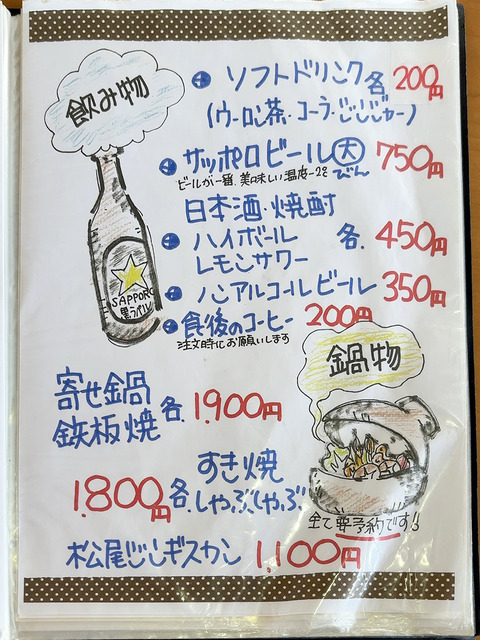 飲み物
ソフトドリンク各200円
(ウーロン茶・コーラ・じんじゃー)
サッポロビール大びん 750円
ビールが一番、美味しい温度-2℃
日本酒・焼酎
ハイボール 各.450円
レモンサワー
ノンアルコールビール 350円
食後のコーヒー 200円
注文時にお願いします
SAPPORO
黒ラベル
鍋物
寄せ鍋
鉄板焼 各.1.900円
すき焼
1.800円各.しゃぶしゃぶ
全て要予約です!!
松尾じんギスカン 1,100円